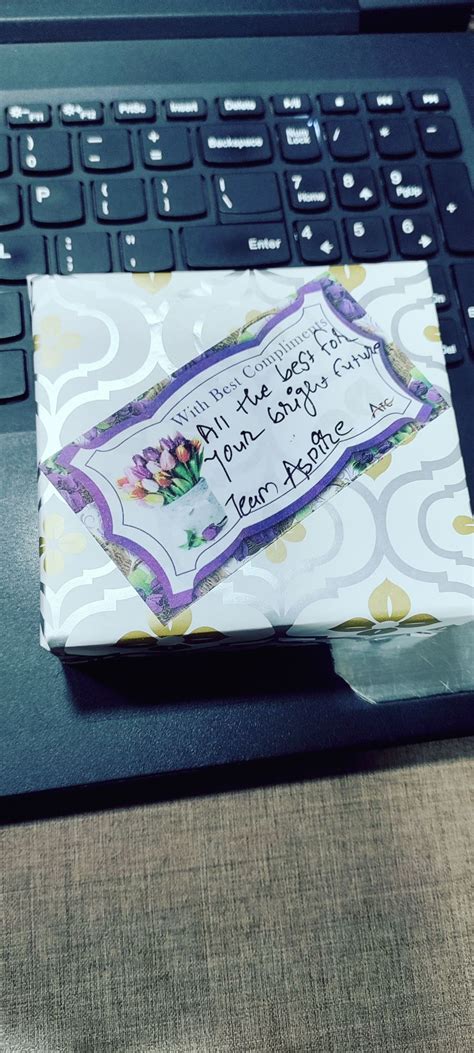 Fn F11
Fn F12
PrtSc
Insert
Delete
Backspace
Num Lock
7 Home
8
9 PgUp
P
Enter
4
5
6
With Best Compliments
All the best for
your bright future
Team Aspire